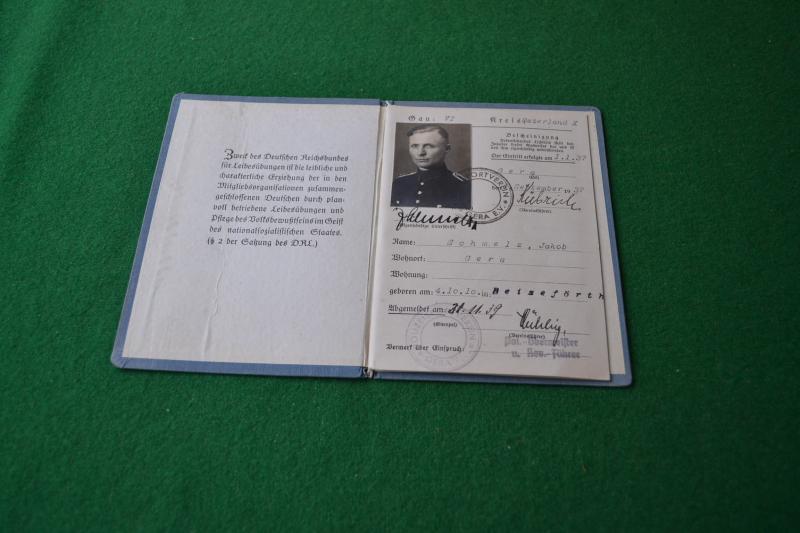 Zweck des Deutschen Reichsbundes
für Leibesübungen ist die leibliche und
charakterliche Erziehung der in den
Mitgliedsorganisationen zusammen-
geschlossenen Deutschen durch plan-
voll betriebene Leibesübungen und
Pflege des Volksbewußtseins im Geist
des nationalsozialistischen Staates.
(§ 2 der Satzung des DRL.)
Gau: VI Kreis: Osterland I
Bescheinigung
Der Eintritt erfolgte am 1.1.37
Gera
den
SPORTVEREIN
GERA E.V.
(Vereinsführer)
(Eigenhändige Unterschrift)
Name: Schmelz, Jakob
Wohnort: Gera
Wohnung:
geboren am: 4.10.10 in: Beiseförth
Abgemeldet am: 30.11.39
(Stempel)
(Vereinsführer)
Pol.-Obermeister
u. Rev.-Führer
Vermerk über Einspruch: